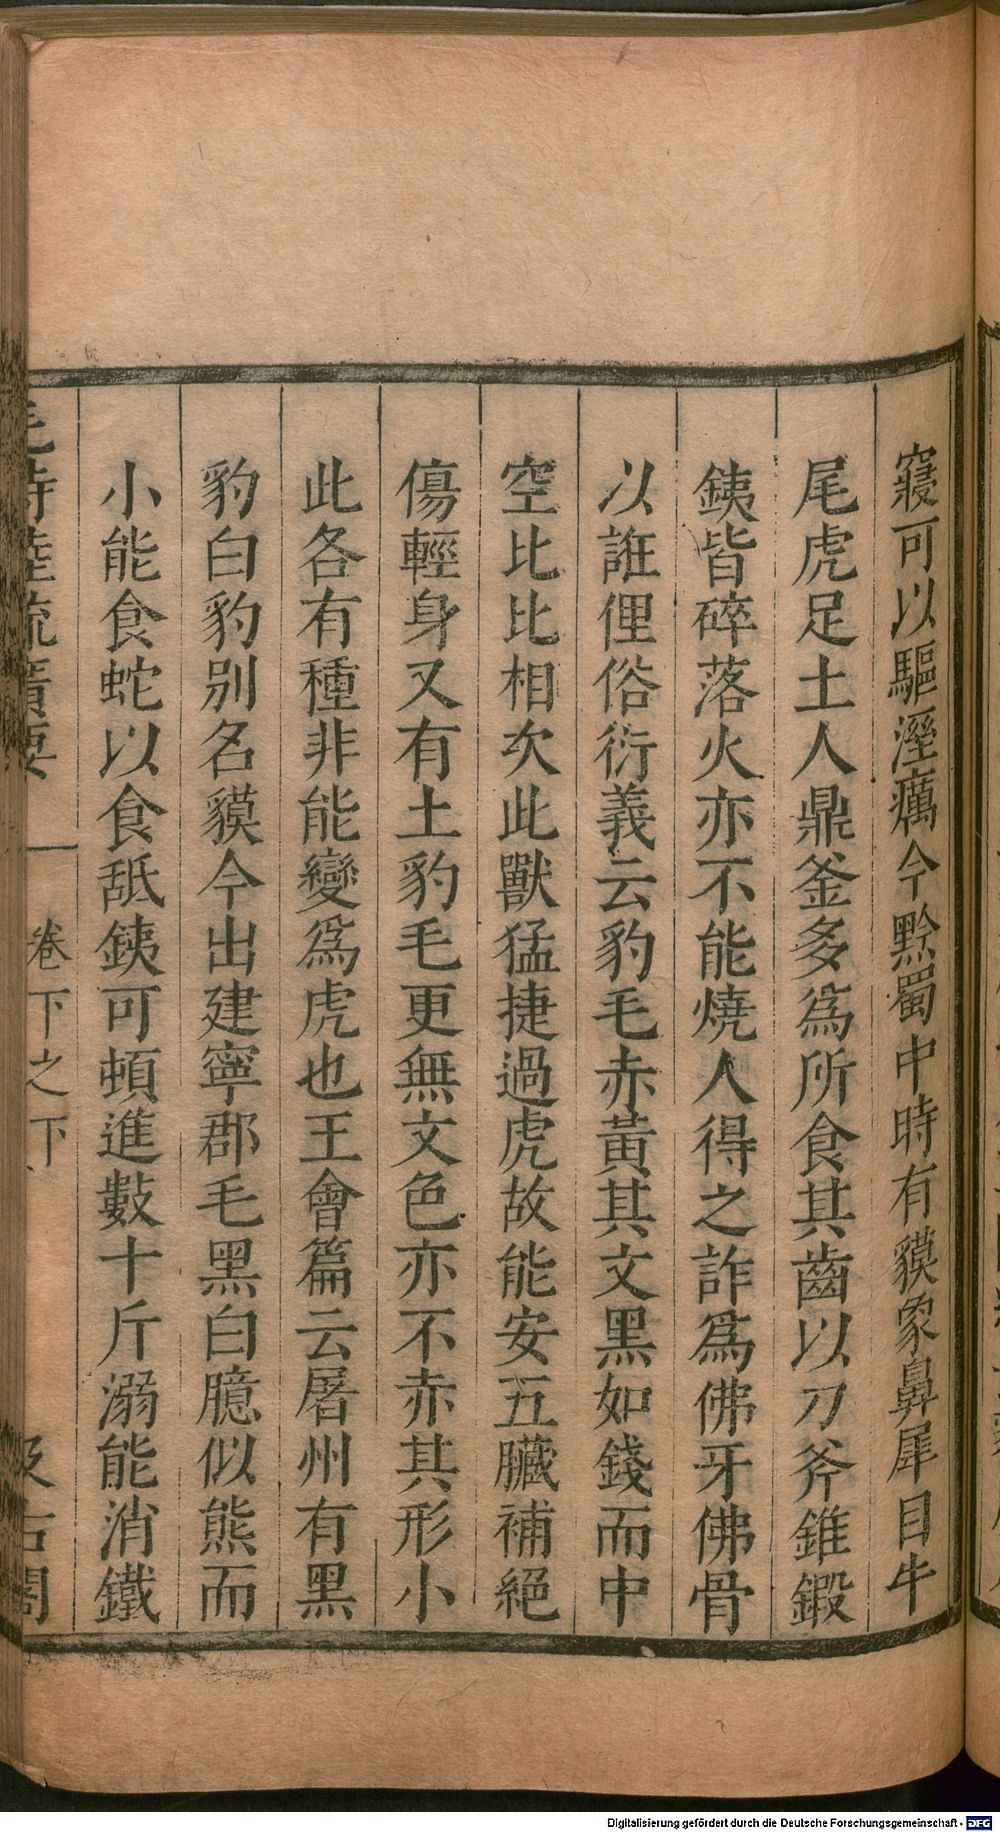 寢可以驅溼癘今黔蜀中時有貘象鼻犀目牛
尾虎足土人鼎釜多為所食其齒以刀斧錐鍛
銕皆碎落火亦不能燒人得之詐為佛牙佛骨
以誑俚俗衍義云豹毛赤黃其文黑如錢而中
空比比相次此獸猛捷過虎故能安五臟補絕
傷輕身又有土豹毛更無文色亦不赤其形小
此各有種非能變為虎也王會篇云屠州有黑
豹白豹別名貘今出建寧郡毛黑白臆似熊而
小能食蛇以食舐銕可頓進數十斤溺能消鐵
毛詩陸疏廣要 卷下之下 汲古閣
Digitalisierung gefördert durch die Deutsche Forschungsgemeinschaft - DFG